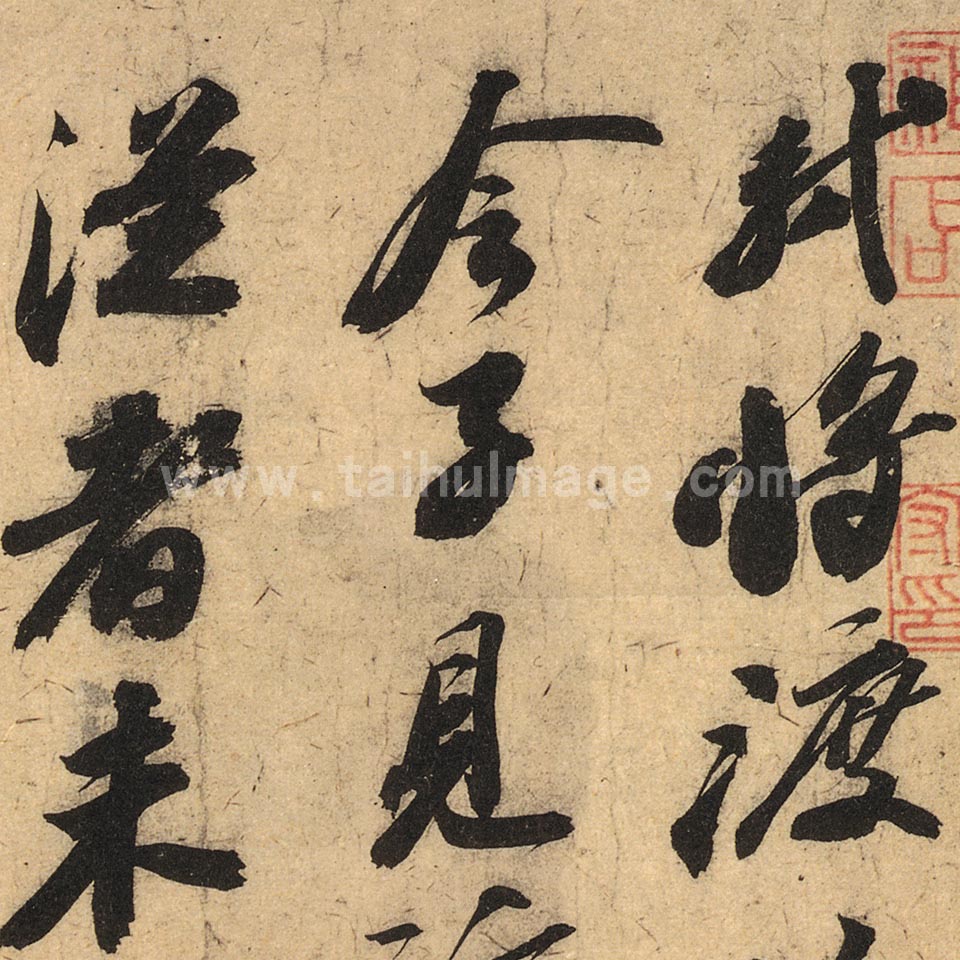 軾將渡
令子見
從者未
www.taihuImage.com